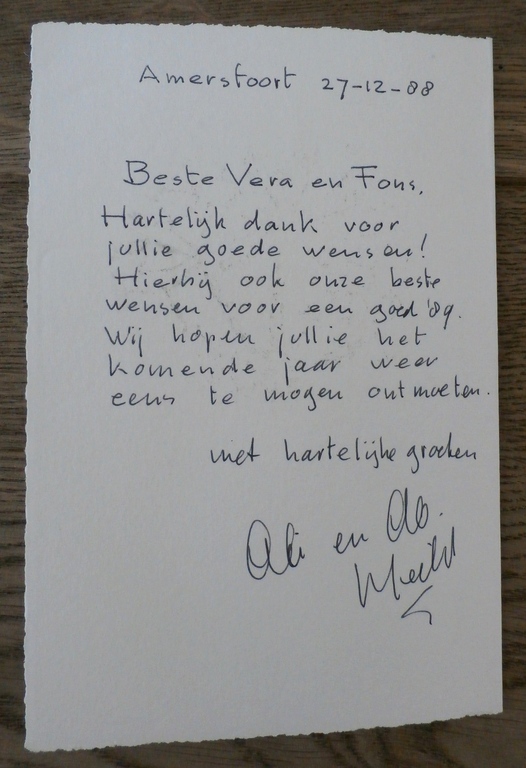 Amersfoort 27-12-88
Beste Vera en Fons,
Hartelijk dank voor
jullie goede wensen!
Hierbij ook onze beste
wensen voor een goed '89.
Wij hopen jullie het
komende jaar weer
eens te mogen ontmoeten.
met hartelijke groeten
Ali en